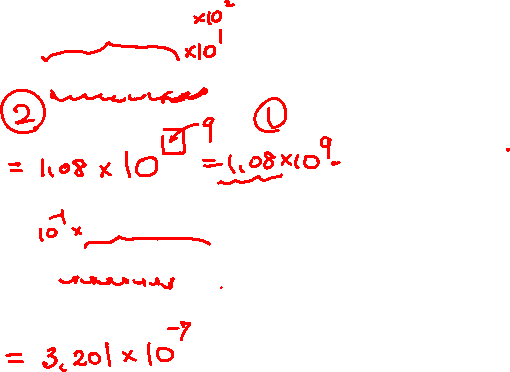 ×10²
×10¹
② ①
= 1.08 × 10 ← 9 = 1.08 × 10⁹
10⁻¹ ×
= 3.201 × 10⁻⁷